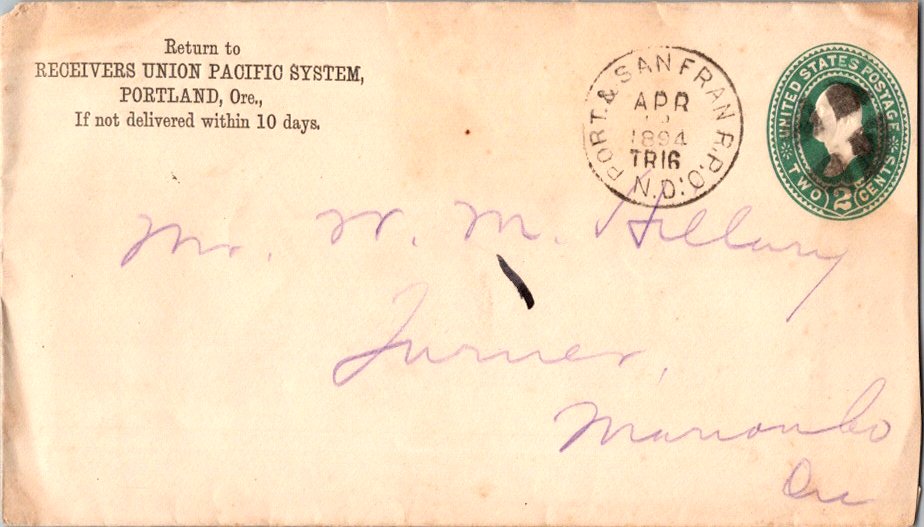 Return to
RECEIVERS UNION PACIFIC SYSTEM,
PORTLAND, Ore.,
If not delivered within 10 days.
PORT. & SAN FRAN R.P.O.
APR
1894
TR16
N.D.
UNITED STATES POSTAGE
TWO 2 CENTS
Mr. W. M. Hillary
Turner,
Marion Co
Ore